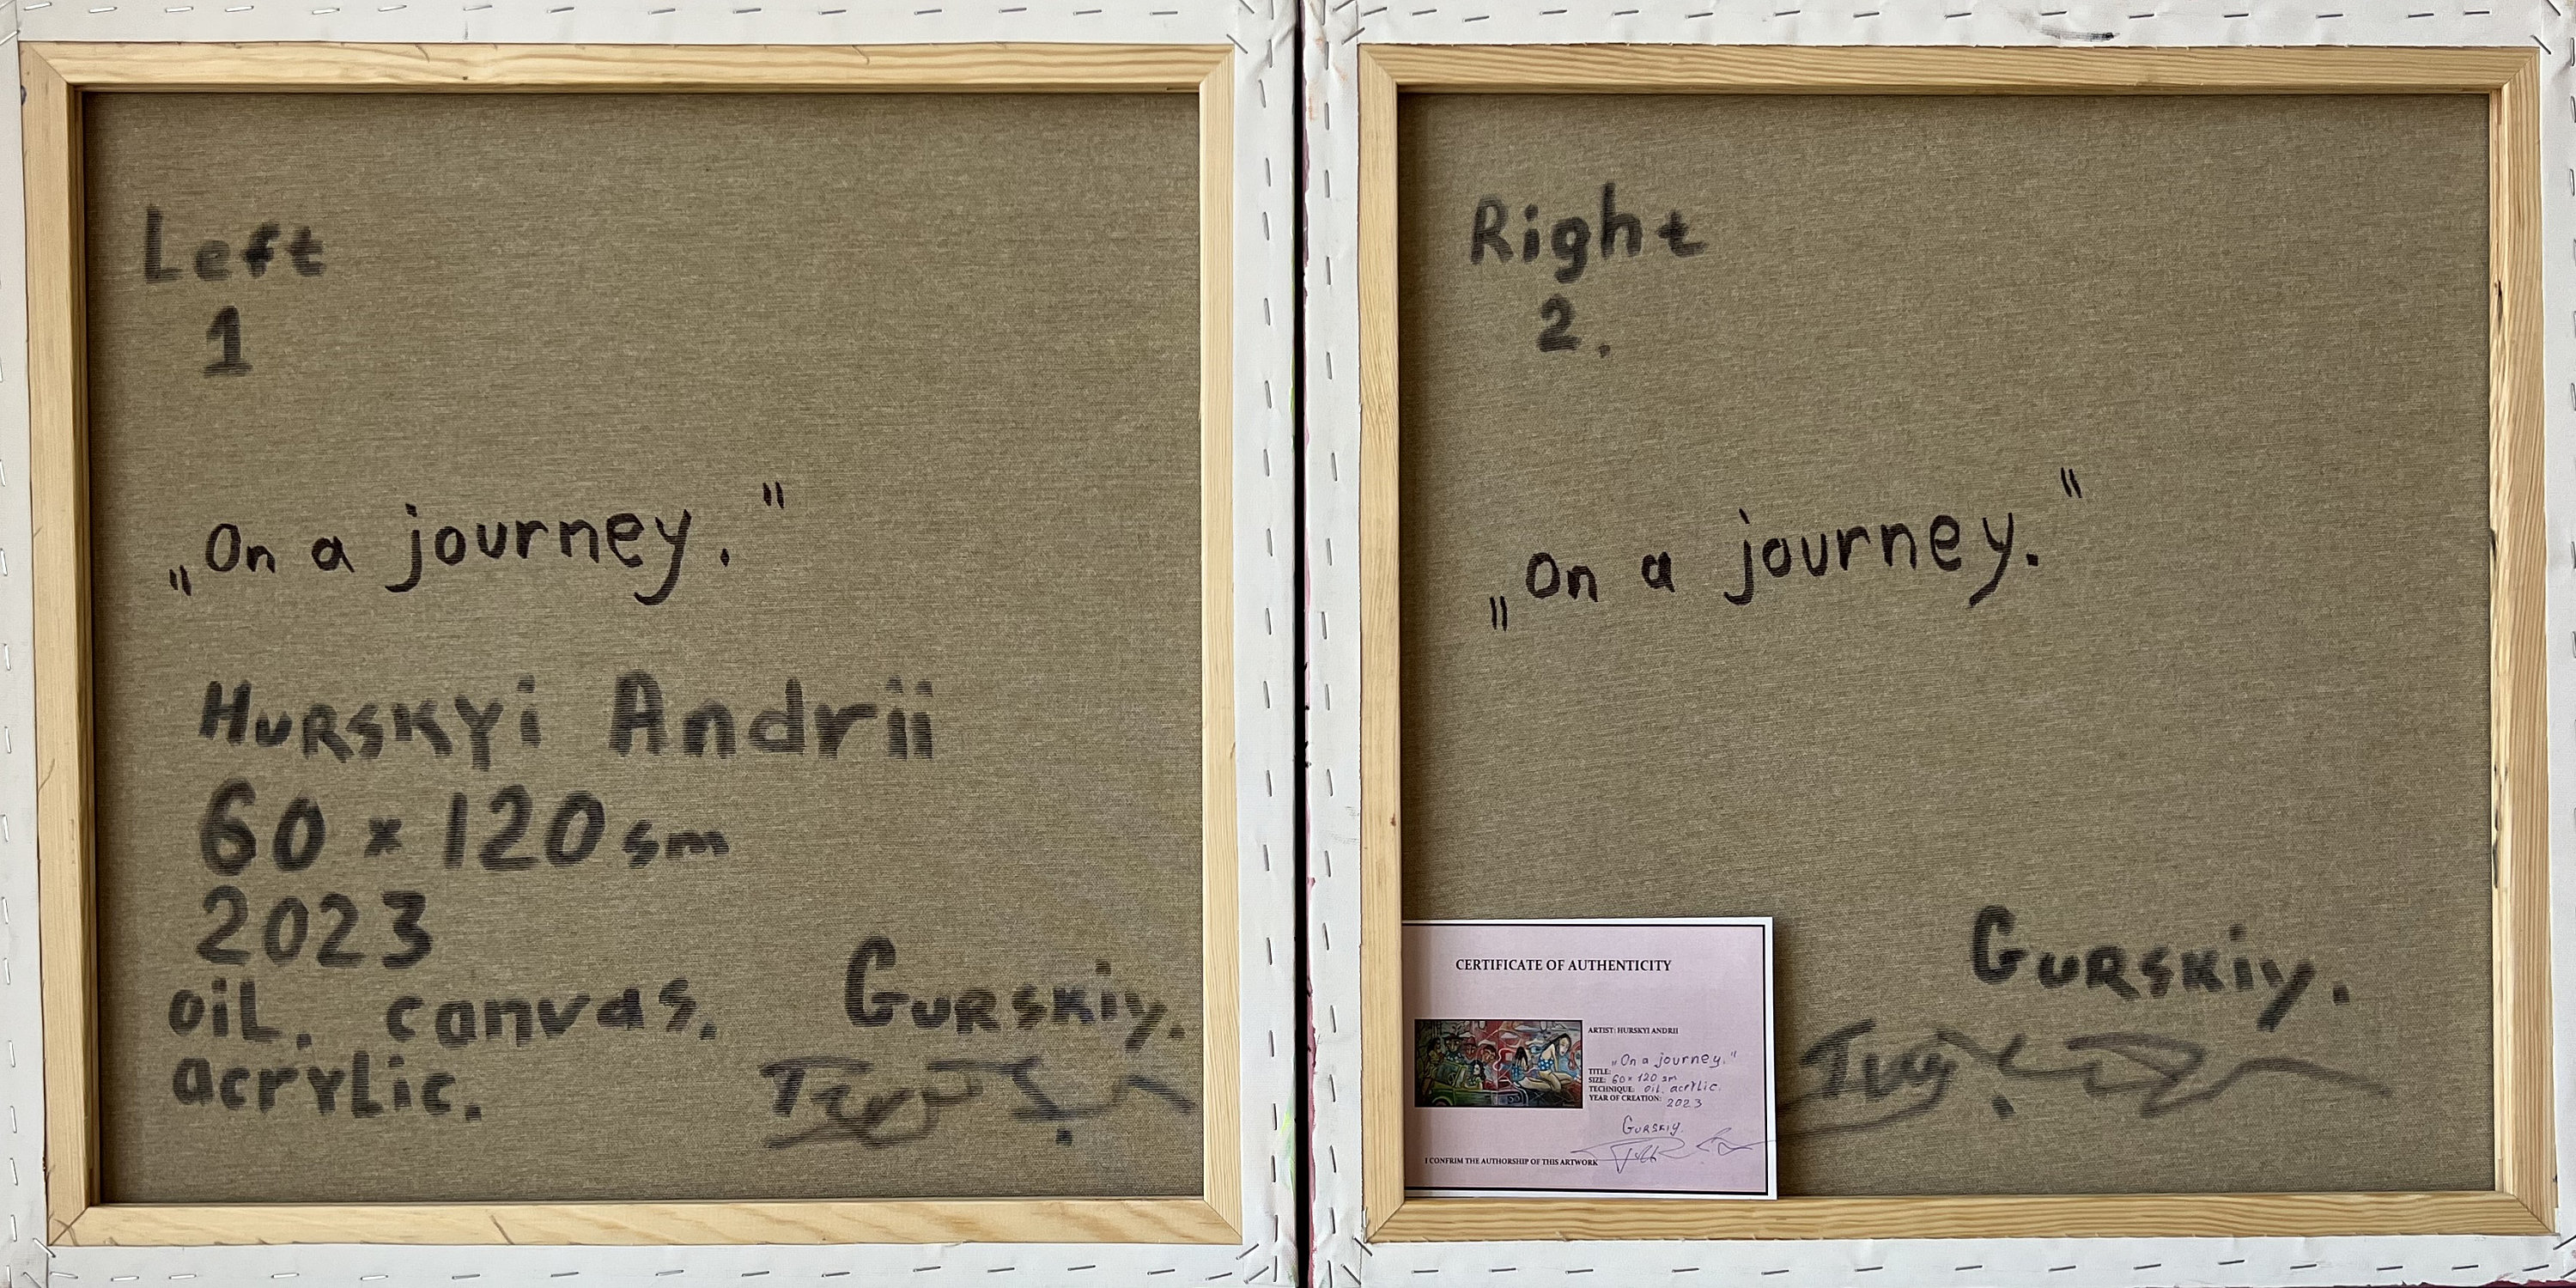 Left
1
„On a journey."
Hurskyi Andrii
60 × 120 sm
2023
oil. canvas.
acrylic.
Gurskiy.
Right
2.
„On a journey."
Gurskiy.
CERTIFICATE OF AUTHENTICITY
ARTIST: HURSKYI ANDRII
„On a journey."
TITLE:
SIZE: 60 × 120 sm
TECHNIQUE: oil. acrylic.
YEAR OF CREATION: 2023
Gurskiy.
I CONFRIM THE AUTHORSHIP OF THIS ARTWORK